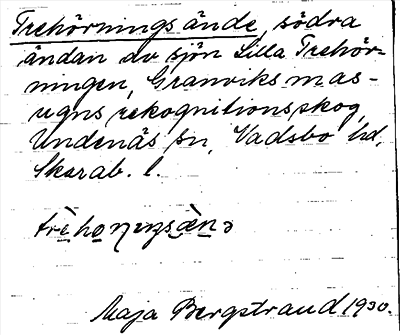 Trehörningsände, södra
ändan av sjön Lilla Trehör-
ningen, Granviks mas-
ugns rekognitionsskog,
Undenäs sn, Vadsbo hd,
Skarab. l.
Maja Bergstrand 1930.